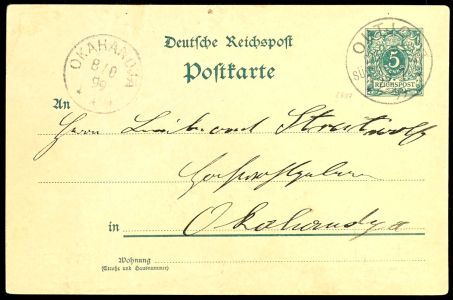 OKAHANDJA
8/6
99
Deutsche Reichspost
Postkarte
OUTJO
5
REICHSPOST
An
Herrn Lieutnant Streitwolf
in Okahandja
Wohnung
(Straße und Hausnummer)